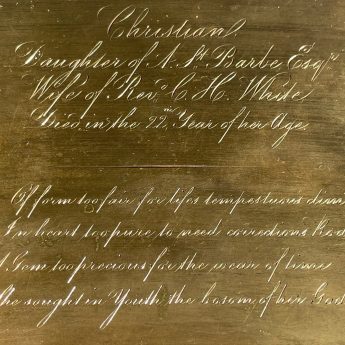 Christian,
Daughter of A. St. Barbe Esqre.
Wife of Revd. C. H. White
Died in the 22nd Year of her Age.
Of form too fair for lifes tempestuous clim
In heart too pure to need corrections Rod
A Gem too precious for the wear of time
She sought in Youth the bosom of her God